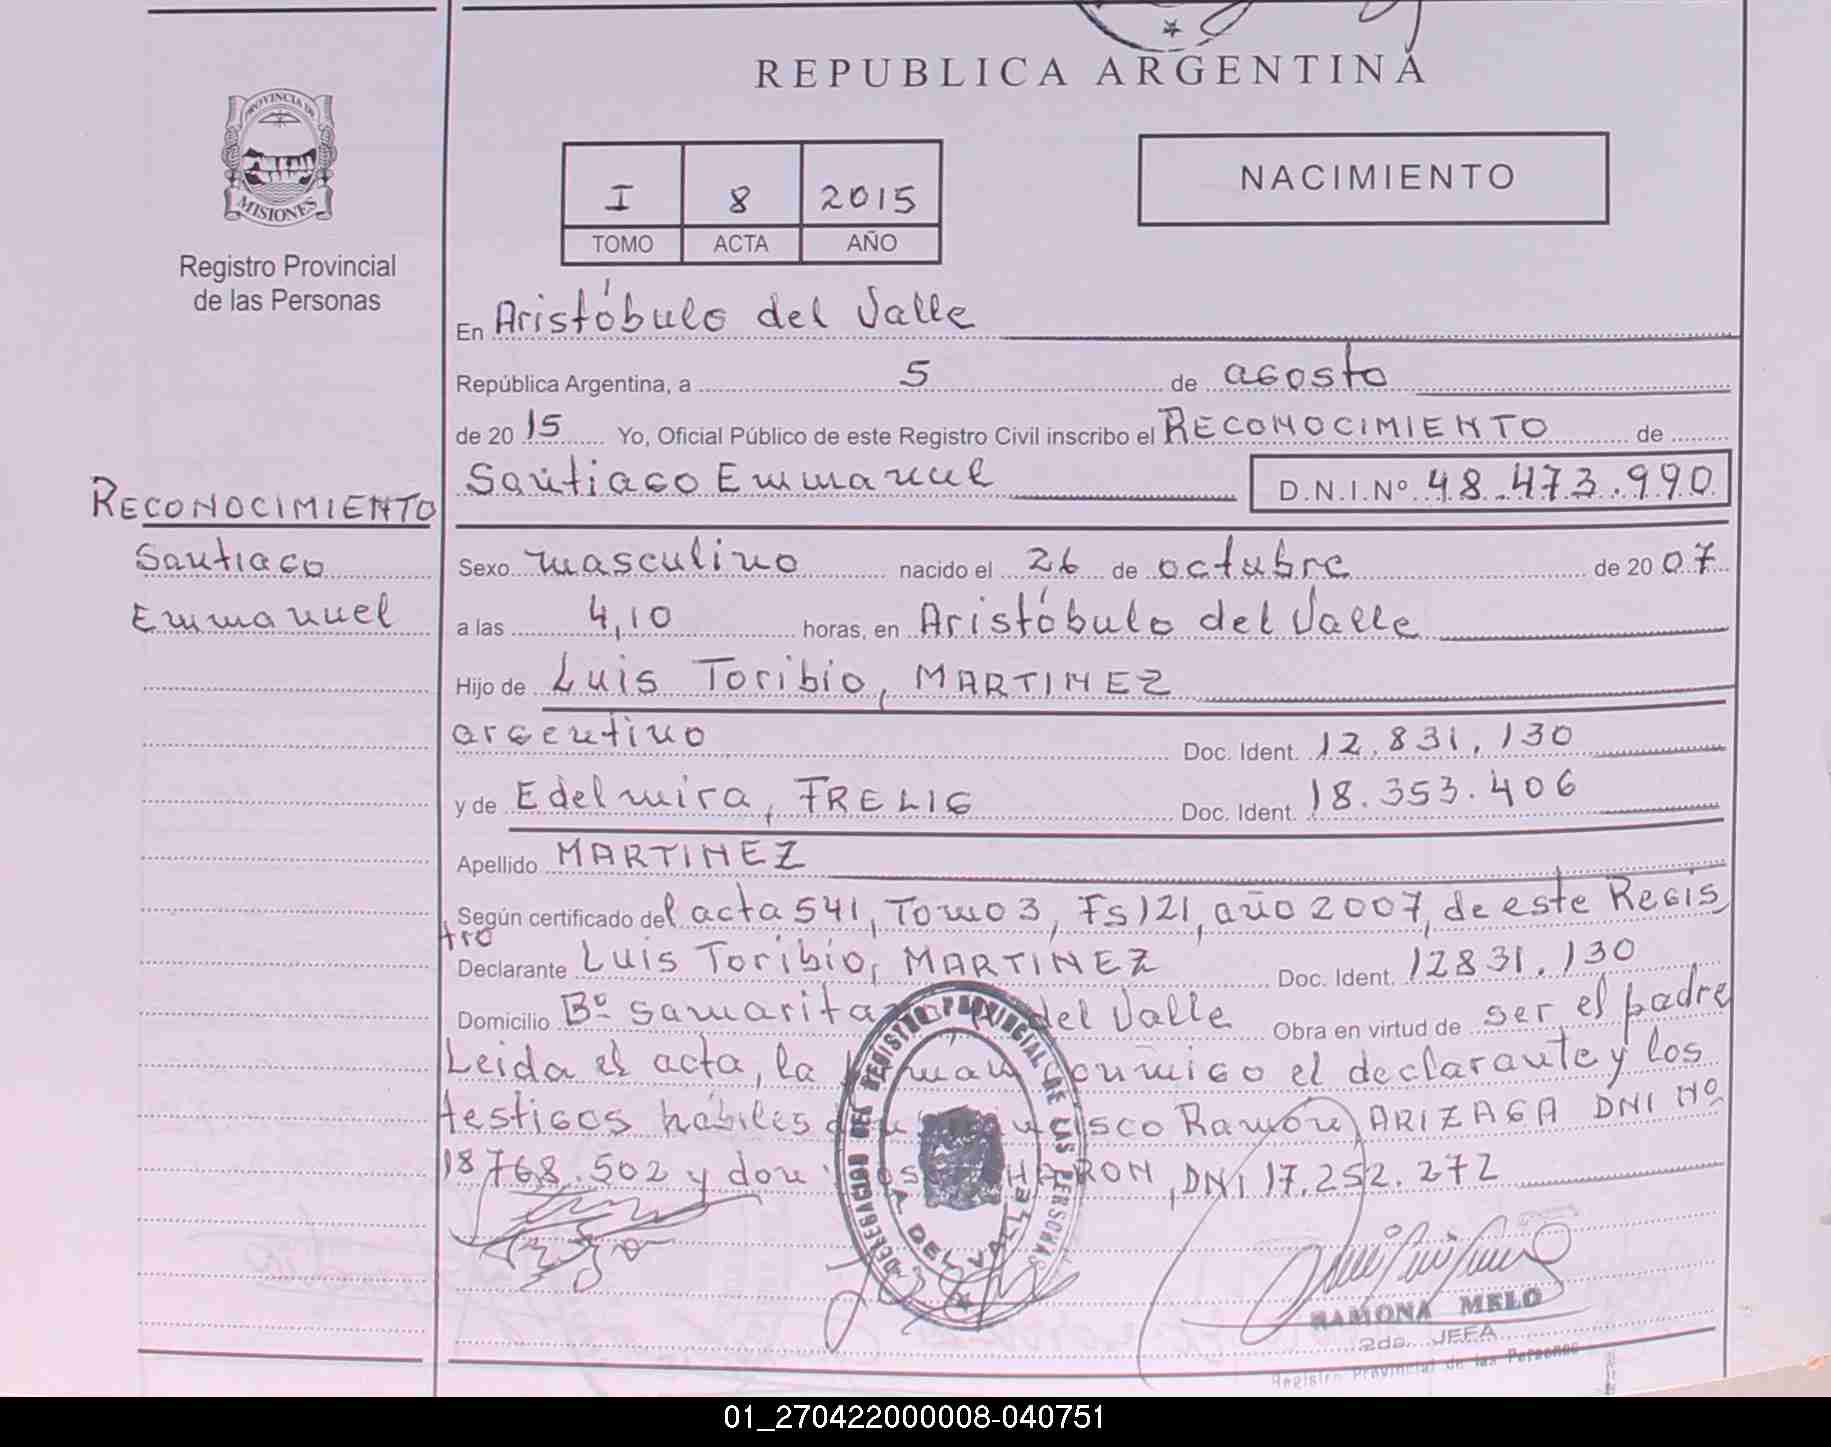 REPUBLICA ARGENTINA
PROVINCIA DE
MISIONES
Registro Provincial
de las Personas
NACIMIENTO
I 8 2015
TOMO ACTA AÑO
En Aristóbulo del Valle
República Argentina, a 5 de agosto
de 20 15 Yo, Oficial Público de este Registro Civil inscribo el RECONOCIMIENTO de
Santiago Emmanuel D.N.I.Nº 48.473.990
RECONOCIMIENTO
Santiago
Emmanuel
Sexo masculino nacido el 26 de octubre de 20 07
a las 4,10 horas, en Aristóbulo del Valle
Hijo de Luis Toribio, MARTINEZ
argentino Doc. Ident. 12.831.130
y de Edelmira, FRELIG Doc. Ident. 18.353.406
Apellido MARTINEZ
Según certificado del acta 541, Tomo 3, Fs 121, año 2007, de este Regis
tro
Declarante Luis Toribio, MARTINEZ Doc. Ident. 12831.130
Domicilio Bº Samarita del Valle Obra en virtud de ser el padre
Leida el acta, la conmigo el declarante y los
testigos hábiles Ramón, ARIZAGA DNI Nº
18768.502 y don DNI 17.252.272
DELEGACION DEL REGISTRO PROVINCIAL DE LAS PERSONAS
A. DEL VALLE
RAMONA MELO
2da. JEFA
Registro Provincial de las Personas
01_270422000008-040751